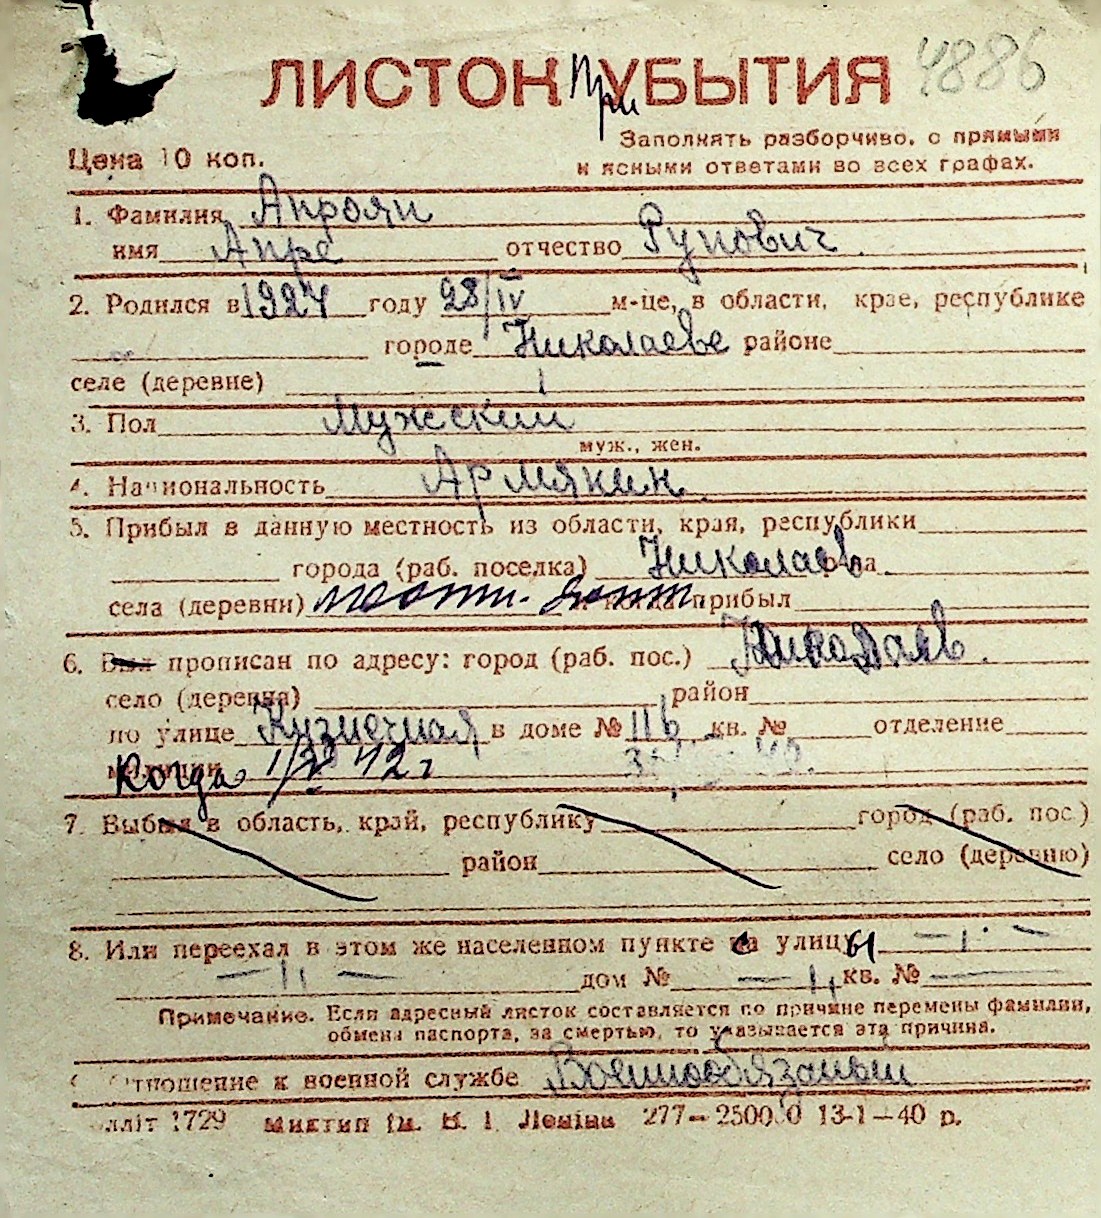 4886
ЛИСТОК при УБЫТИЯ
Заполнять разборчиво, с прямыми
Цена 10 коп.
и ясными ответами во всех графах.
1. Фамилия Апроян
имя Апре отчество Рупович
2. Родился в 1924 году 28/IV м-це, в области, крае, республике
городе Николаеве районе
селе (деревне)
3. Пол Мужской
муж., жен.
4. Национальность Армякин
5. Прибыл в данную местность из области, края, республики
города (раб. поселка) Николаев
села (деревни) прибыл
6. Был прописан по адресу: город (раб. пос.) Николаев.
село (деревна) район
по улице Кузнечная в доме № 116 кв. № отделение
милиции Когда 1/IV 42 г
7. Выбыл в область, край, республику город (раб. пос.)
район село (деревню)
8. Или переехал в этом же населенном пункте с улицы
дом № кв. №
Примечание. Если адресный листок составляется по причине перемены фамилии,
обмена паспорта, за смертью, то указывается эта причина.
Отношение к военной службе Военнообязаный
лліт 1729 Миктип ім. В. І. Леніна 277—25000 13-1—40 р.